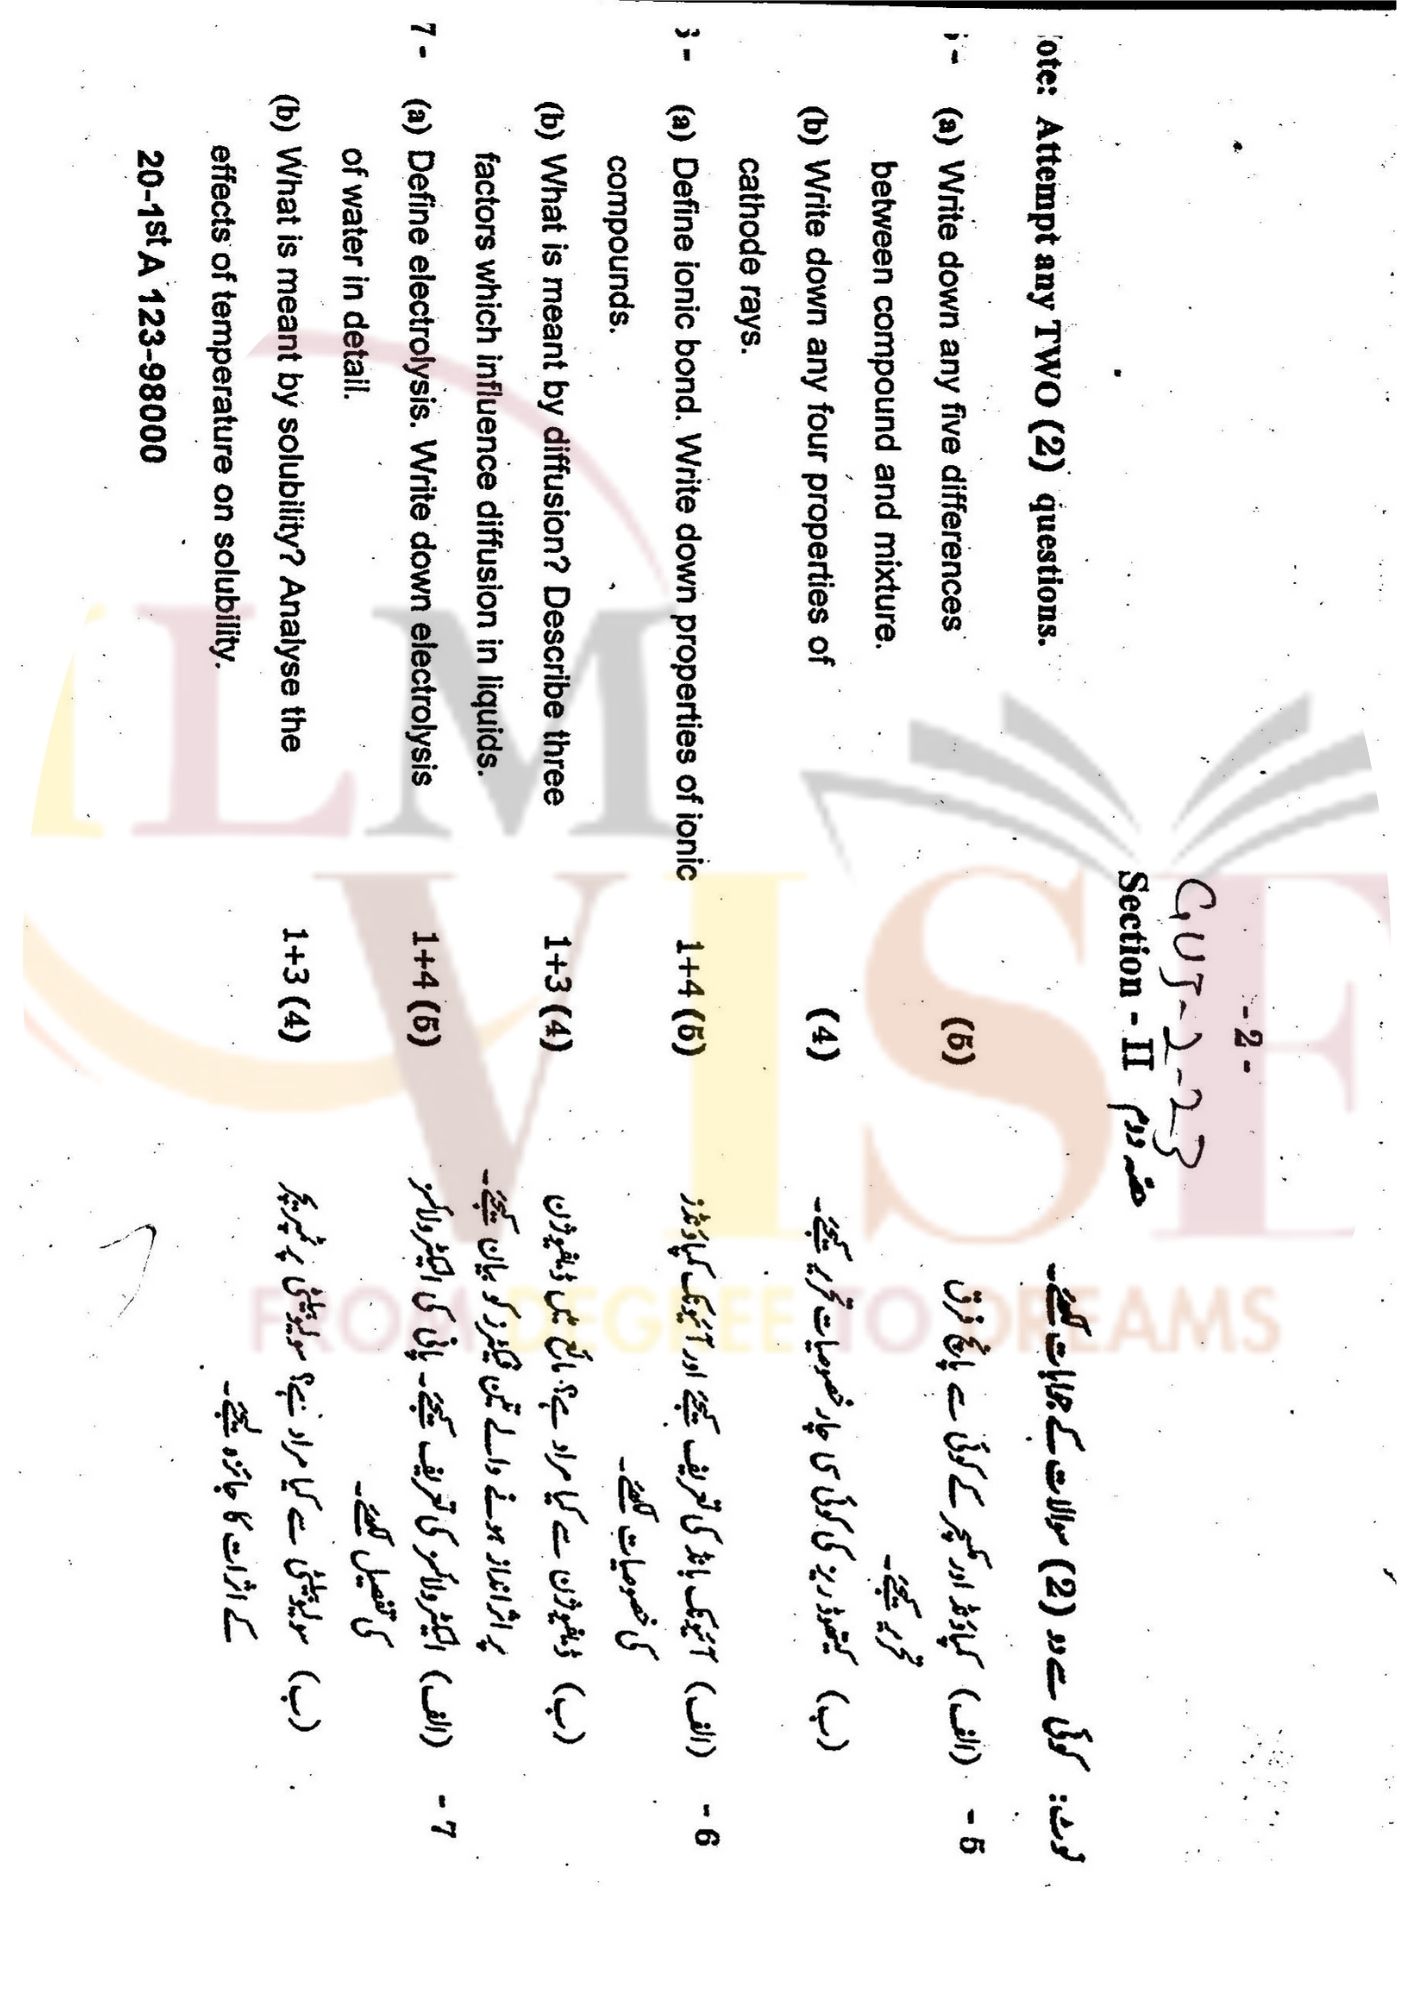 - 2 -
GUJ-2-23
Section - II حصہ دوم
ote: Attempt any TWO (2) questions. نوٹ: کوئی سے دو (2) سوالات کے جوابات لکھئے۔
(a) Write down any five differences (5) 5 - (الف) کمپاؤنڈ اور مکسچر کے کوئی سے پانچ فرق
between compound and mixture. تحریر کیجئے۔
(b) Write down any four properties of (4) (ب) کیتھوڈ ریز کی کوئی سی چار خصوصیات تحریر کیجئے۔
cathode rays.
(a) Define ionic bond. Write down properties of ionic 1+4 (5) 6 - (الف) آئیونک بانڈ کی تعریف کیجئے اور آئیونک کمپاؤنڈز
compounds. کی خصوصیات لکھئے۔
(b) What is meant by diffusion? Describe three 1+3 (4) (ب) ڈفیوژن سے کیا مراد ہے؟ مائع میں ڈفیوژن
factors which influence diffusion in liquids. پر اثرانداز ہونے والے تین فیکٹرز کو بیان کیجئے۔
7 - (a) Define electrolysis. Write down electrolysis 1+4 (5) 7 - (الف) الیکٹرولائسز کی تعریف کیجئے۔ پانی کی الیکٹرولائسز
of water in detail. کی تفصیل لکھئے۔
(b) What is meant by solubility? Analyse the 1+3 (4) (ب) سولیوبیلٹی سے کیا مراد ہے؟ سولیوبیلٹی پر ٹمپریچر
effects of temperature on solubility. کے اثرات کا جائزہ لیجئے۔
20-1st A 123-98000
ILM
VISE
FROM DEGREE TO DREAMS